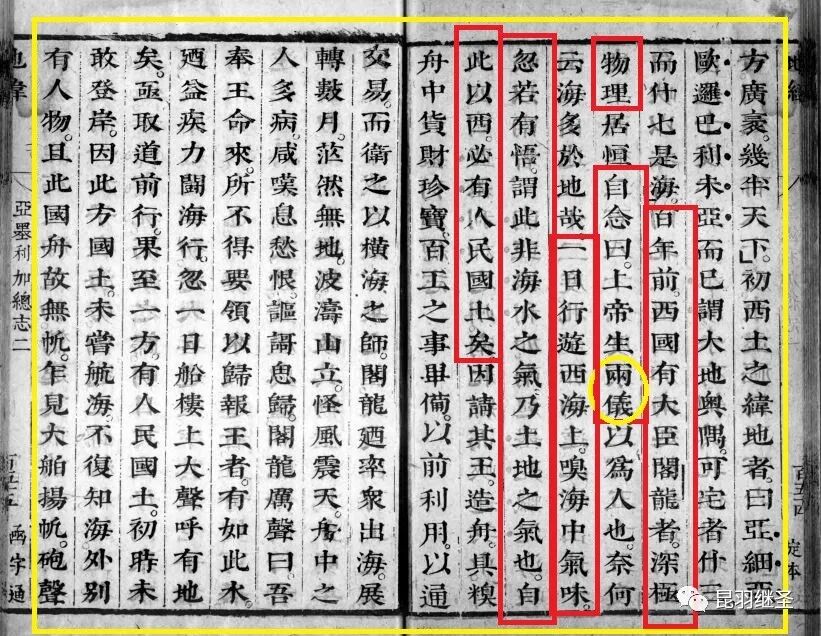 方廣袤幾半天下。初西土之緯地者曰亞細亞
歐邏巴利未亞而已謂大地輿隅可宅者什三
而什七是海。百年前西國有大臣閣龍者。深極
物理居恒自念曰上帝生兩儀以爲人也。奈何
云海多於地哉。一日行遊西海上。嗅海中氣味。
忽若有悟。謂此非海水之氣。乃土地之氣也。自
此以西。必有人民國土矣。因請其王。造舟。具糗
舟中貨財珍寶。百工之事畢備。以前利用。以通
交易。而衛之以橫海之師。閣龍廼率衆出海。展
轉數月。茫然無地。波濤山立。怪風震天。舟中之
人多病。咸嘆息愁恨。謳謌思歸。閣龍厲聲曰。吾
奉王命來。所不得要領以歸報王者。有如此水。
廼益疾力鬬海行。忽一日船樓上大聲呼有地
矣。亟取道前行。果至一方。有人民國土。初時未
敢登岸。因此方國土。未嘗航海。不復知海外別
有人物。且此國舟故無帆。乍見大舶揚帆。砲聲
地緯
亞墨利加總志二
百五十五
函宇通
昆羽继圣